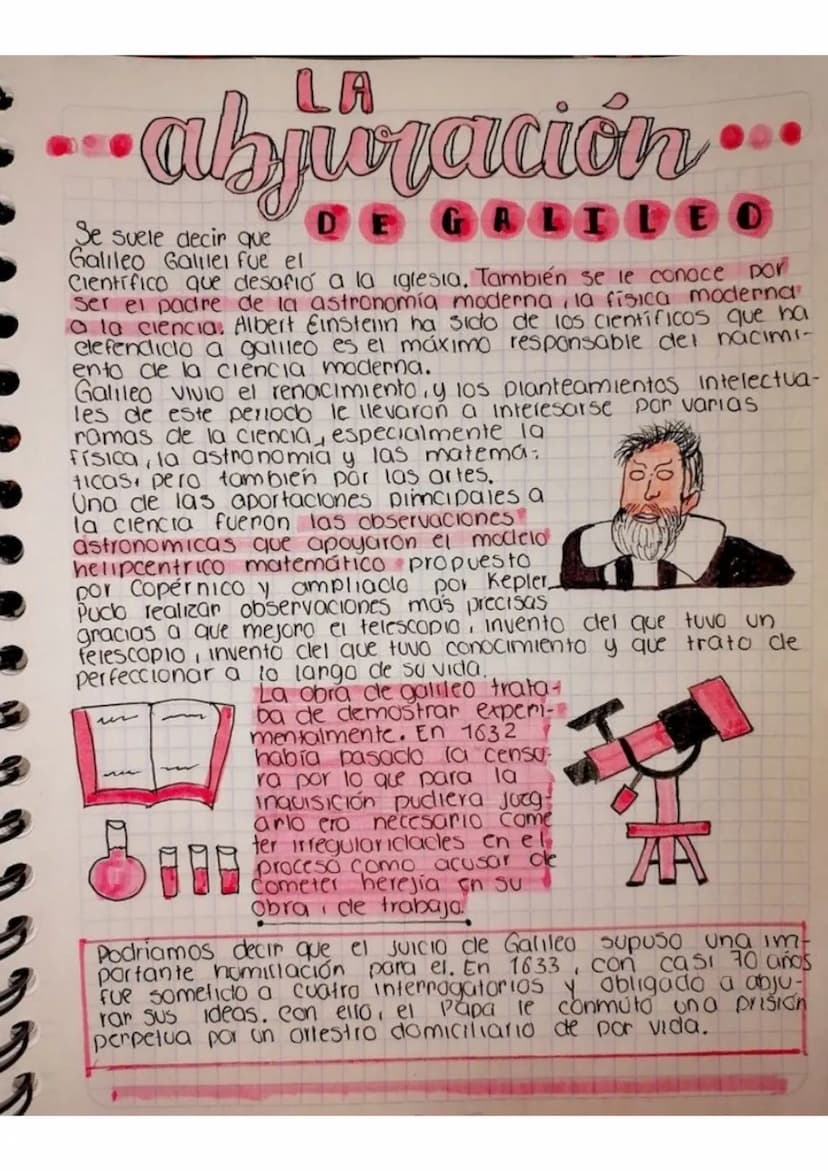 LA
abjuración
DE GALILEO
Se suele decir que
Galileo Galilei fue el
Científico que desafió a la iglesia. También se le conoce por
ser el padre de la astronomía moderna, la física moderna
o la ciencia. Albert Einstein ha sido de los científicos que ha
defendido a galileo es el máximo responsable del nacimi-
ento de la ciencia moderna.
Galileo vivio el renacimiento, y los planteamientos intelectua-
les de este periodo le llevaron a interesarse por varias
ramas de la ciencia, especialmente la
física, la astronomía y las matemá-
ticas, pero también por las artes.
Una de las aportaciones pimcipales a
la ciencia fueron las observaciones
astronomicas que apoyaron el modelo
helipcentrico matemático propuesto
por Copérnico y ampliado por Kepler
Pudo realizar observaciones más precisas
gracias a que mejoro el telescopio, invento del que tuvo un
telescopio, invento del que tuvo conocimiento y que trato de
perfeccionar a lo largo de su vida.
La obra de galileo trata-
ba de demostrar experi-
mentalmente. En 1632
había pasado la censu-
ra por lo que para la
inquisición pudiera juzg-
arlo era necesario come
ter irregularidades en el
proceso como acusar de
cometer herejía en su
obra, de trabajo.
Podriamos decir que el juicio de Galileo supuso una im-
portante humillación para el. En 1633, con casi 70 años
fue sometido a cuatro interrogatorios y obligado a abju-
rar sus ideas. Con ello, el Papa le conmuto una prisión
perpetua por un arrestro domiciliario de por vida.